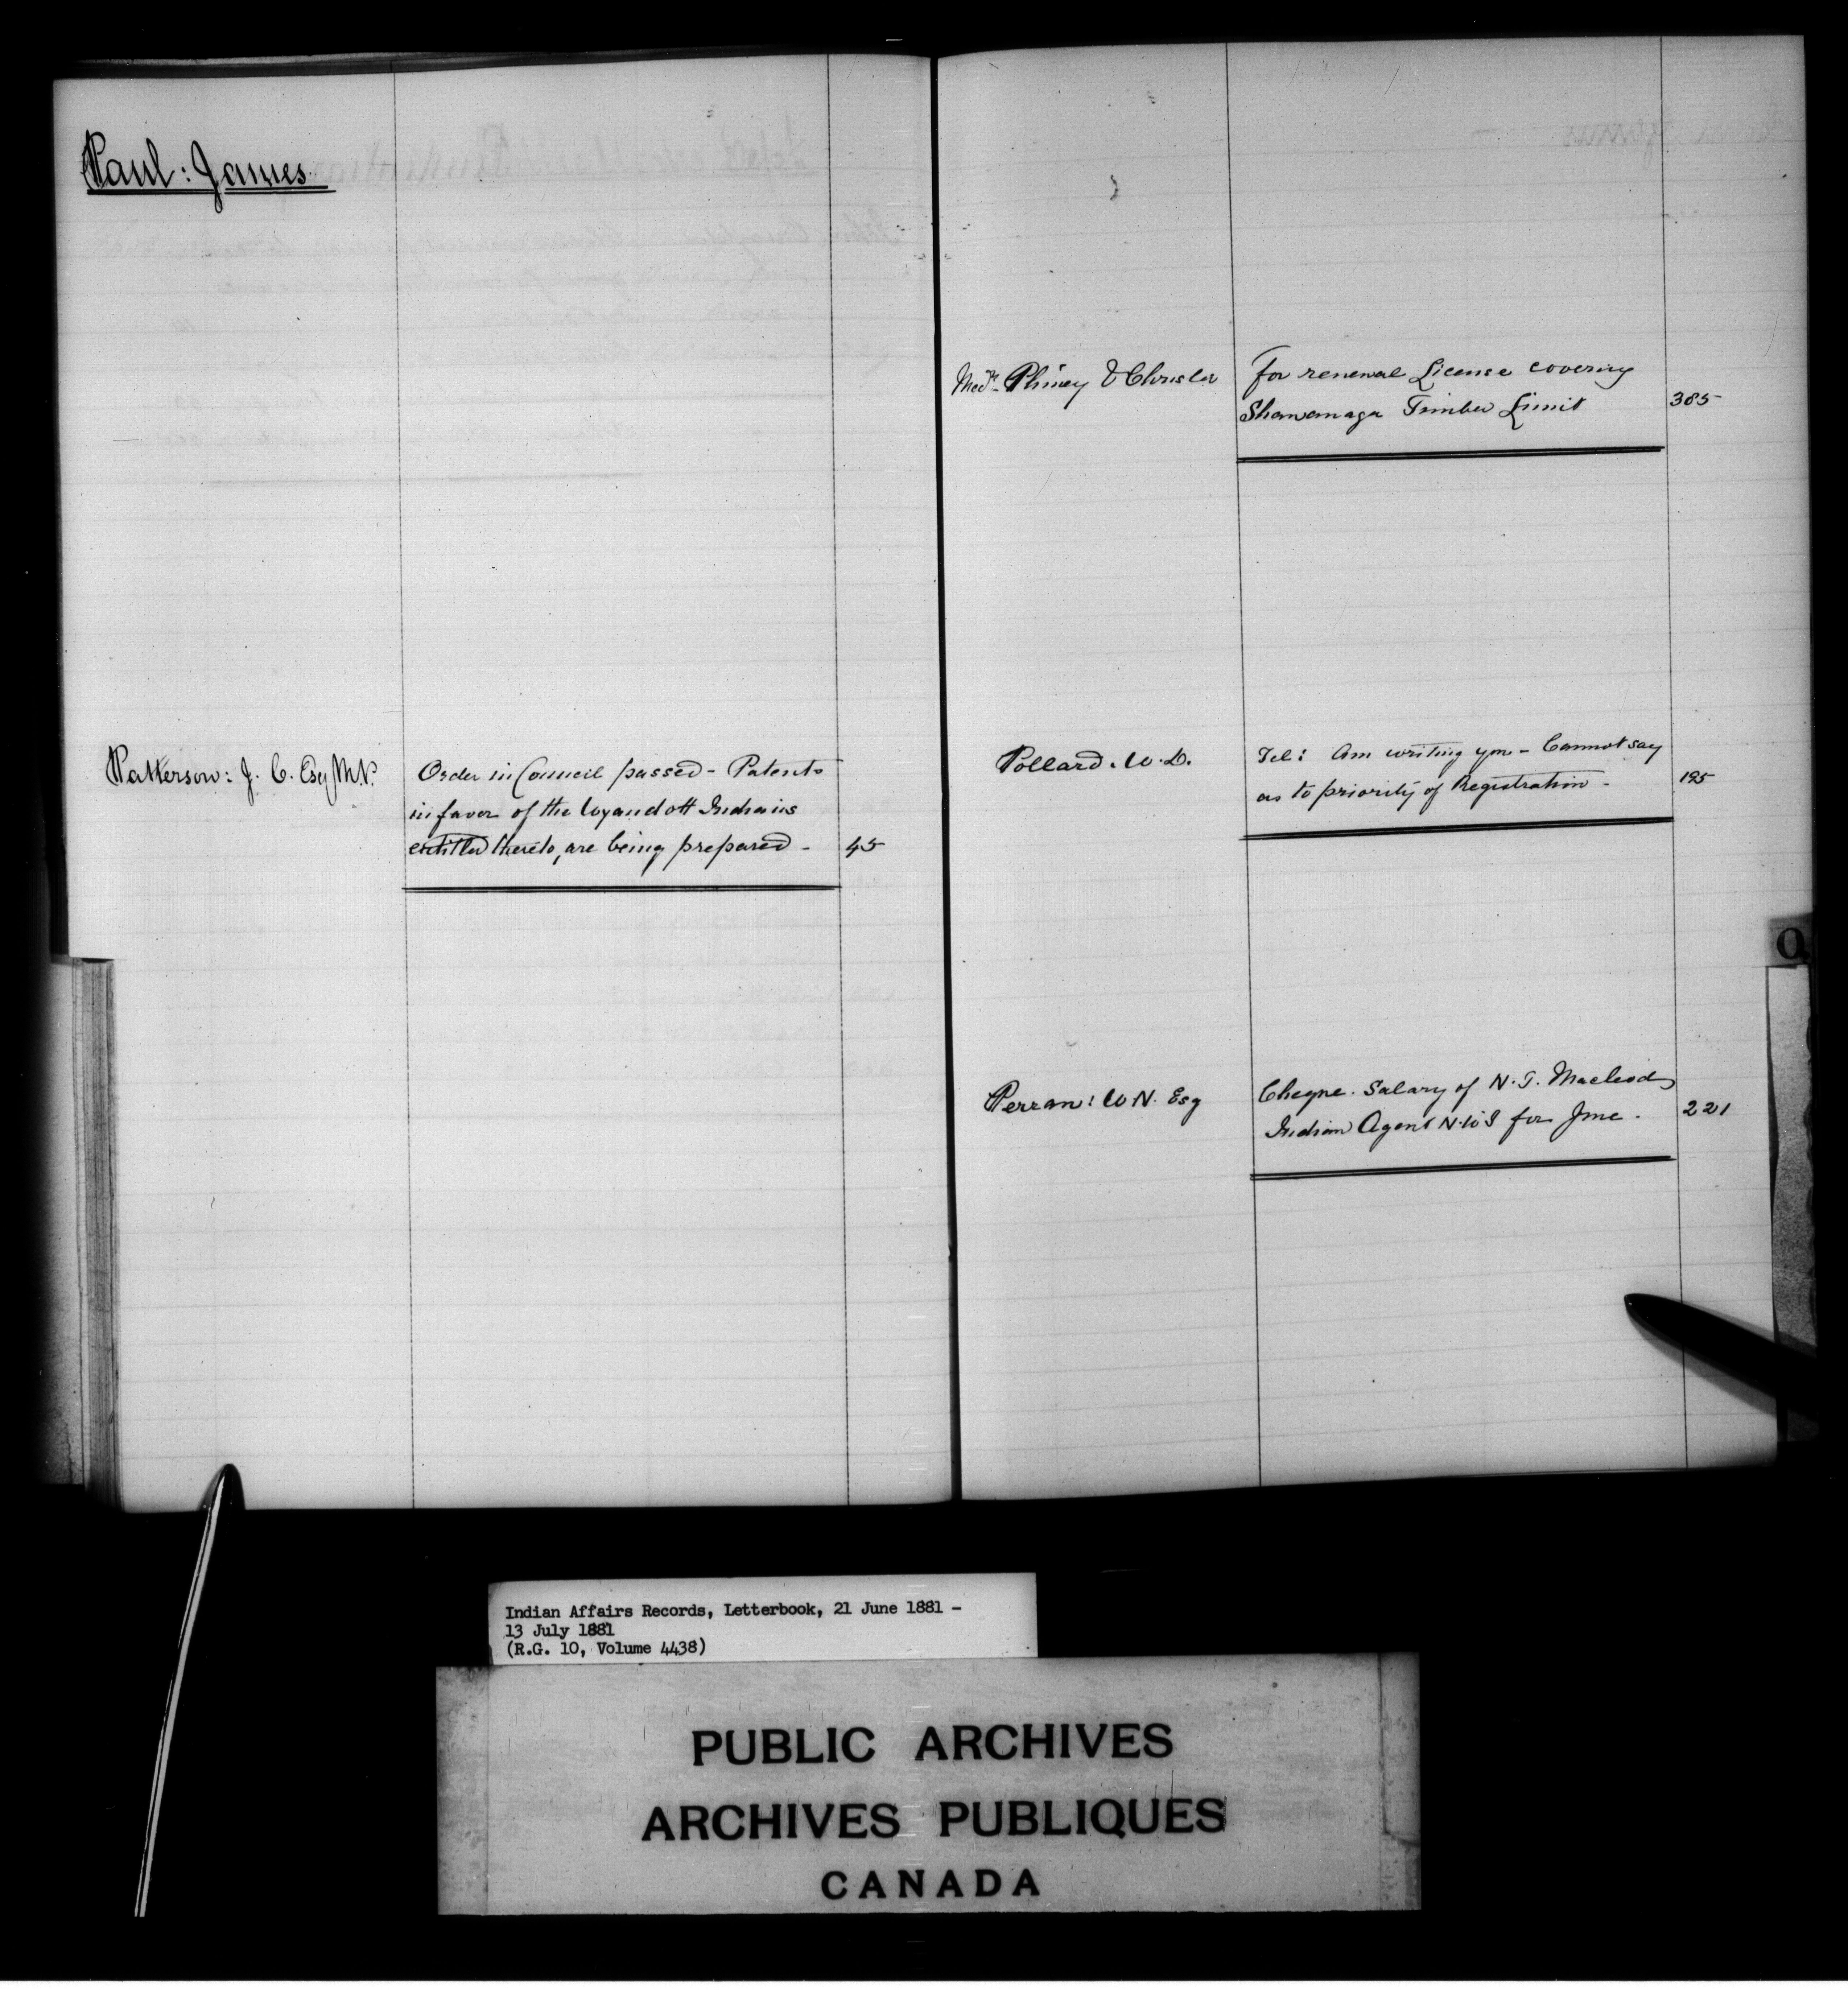 Paul: James
Patterson: J. C. Esq M.P.
Order in Council passed - Patents
in favor of the Wyandott Indians
entitled thereto, are being prepared -
45
Phiney & Chrisler
For renewal License covering
Shawanaga Timber Limit
385
Pollard. W. D.
Tel: Am writing you - Cannot say
as to priority of Registration -
195
Perran: W. N. Esq
Cheque. Salary of N. T. Macleod
Indian Agent N.W.T for June.
221
O
Indian Affairs Records, Letterbook, 21 June 1881 -
13 July 1881
(R.G. 10, Volume 4438)
PUBLIC ARCHIVES
ARCHIVES PUBLIQUES
CANADA